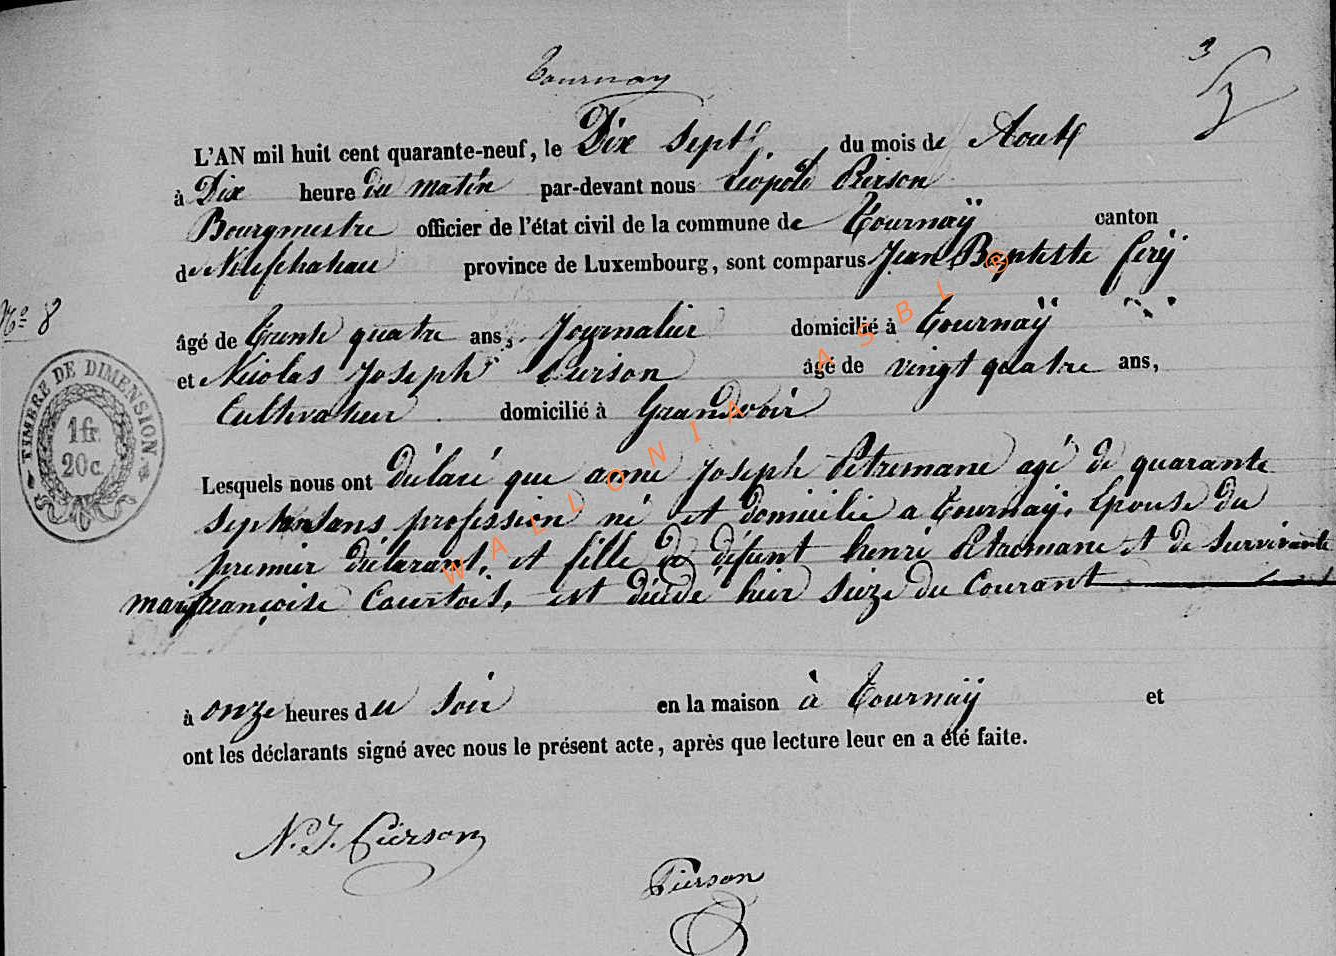 Tournay
3
L'AN mil huit cent quarante-neuf, le Dix sept du mois de Aout
à Dix heure du matin par-devant nous Léopold Pierson
Bourgmestre officier de l'état civil de la commune de Tournaÿ canton
de Neufchateau province de Luxembourg, sont comparus Jean Baptiste féry
N° 8
âgé de trente quatre ans, Journalier domicilié à Tournaÿ
et Nicolas Joseph Pierson âgé de vingt quatre ans,
Cultivateur domicilié à Grandvoir
TIMBRE DE DIMENSION
1 fr.
20 c.
Lesquels nous ont déclaré que anne Joseph Petremane agé de quarante
sept ans sans profession né et domicilie a Tournaÿ, Epouse du
premier déclarant, et fille de défunt henri Petremane et de Survivante
marie françoise Courtois, est décédé hier seize du Courant
à onze heures du Soir en la maison à Tournaÿ et
ont les déclarants signé avec nous le présent acte, après que lecture leur en a été faite.
N. J. Pierson
Pierson
WALLONIA ASBL ®